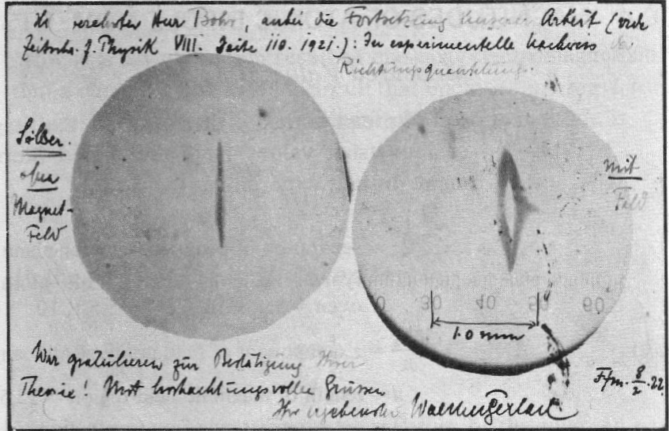 verehrter Herr Bohr, anbei die Fortsetzung unserer Arbeit (vide
Zeitschr. f. Physik VIII. Seite 110. 1921.): Der experimentelle Nachweis der
Richtungsquantelung.
Silber.
ohne
Magnet-
Feld
mit
Feld
30 40 50 60
1.0 mm
Wir gratulieren zur Bestätigung Ihrer
Theorie! Mit hochachtungsvollen Grüssen
Ihr ergebenster Walther Gerlach
Ffm. 8/2. 22